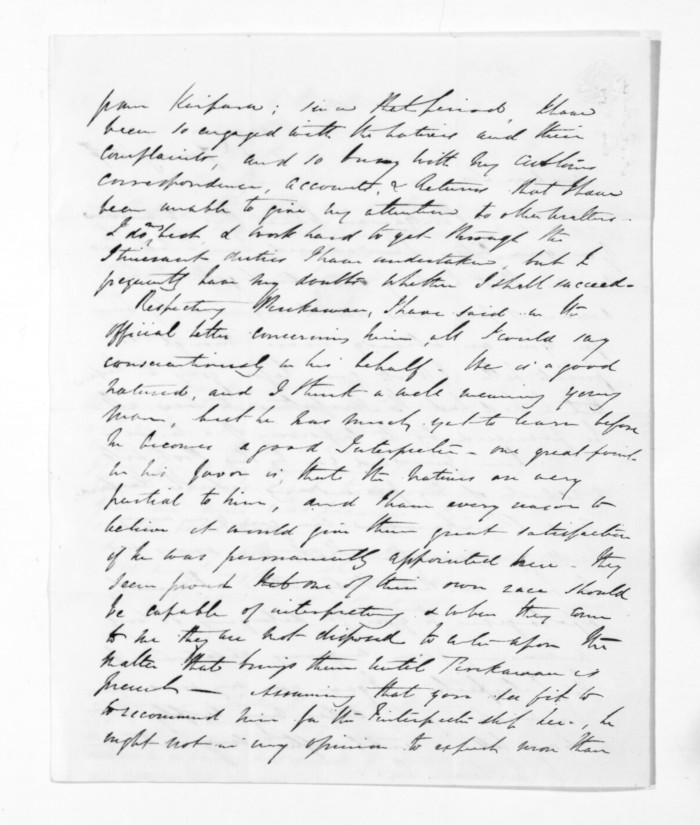 from Kaipara; since that period, I have
been so engaged with the natives and their
complaints, and so busy with my Customs
correspondence, accounts, & Returns that I have
been unable to give my attention to other matters.
I do my best & work hard to get through the
Itinerant duties I have undertaken, but I
frequently have my doubts whether I shall succeed -
Respecting I have said in the
official letter concerning him all I could say
conscientiously in his behalf. He is a good
natured, and I think a well meaning young
man, but he has much yet to learn before
he becomes a good Interpreter - one great point
in his favor is, that the natives are very
partial to him, and I have every reason to
believe it would give them great satisfaction
if he was permanently appointed here - they
seem proud that one of their own race should
be capable of interpreting & when they come
to me they are not disposed to enter upon the
matter that brings them until is
present - Assuming that you see fit to
to recommend him for the Interpretership here, he
ought not in my opinion to expect more than